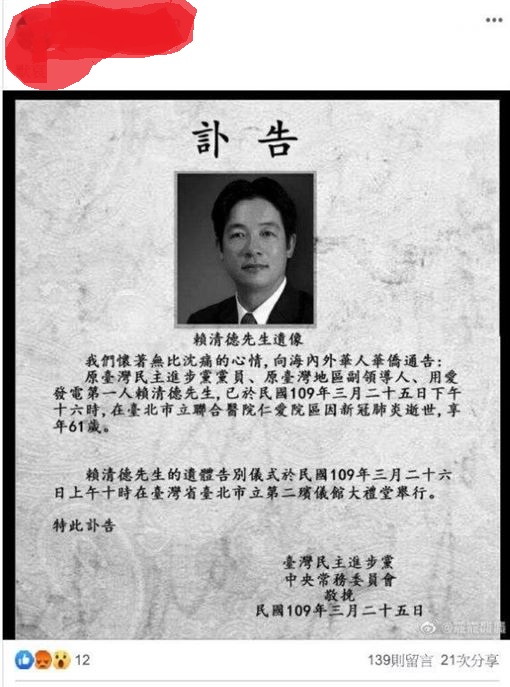 訃 告
賴清德先生遺像
我們懷著無比沈痛的心情,向海內外華人華僑通告:
原臺灣民主進步黨黨員、原臺灣地區副領導人、用愛
發電第一人賴清德先生,已於民國109年三月二十五日下午
十六時,在臺北市立聯合醫院仁愛院區因新冠肺炎逝世,享
年61歲。
賴清德先生的遺體告別儀式於民國109年三月二十六
日上午十時在臺灣省臺北市立第二殯儀館大禮堂舉行。
特此訃告
臺灣民主進步黨
中央常務委員會
敬挽
民國109年三月二十五日
12
139則留言 21次分享